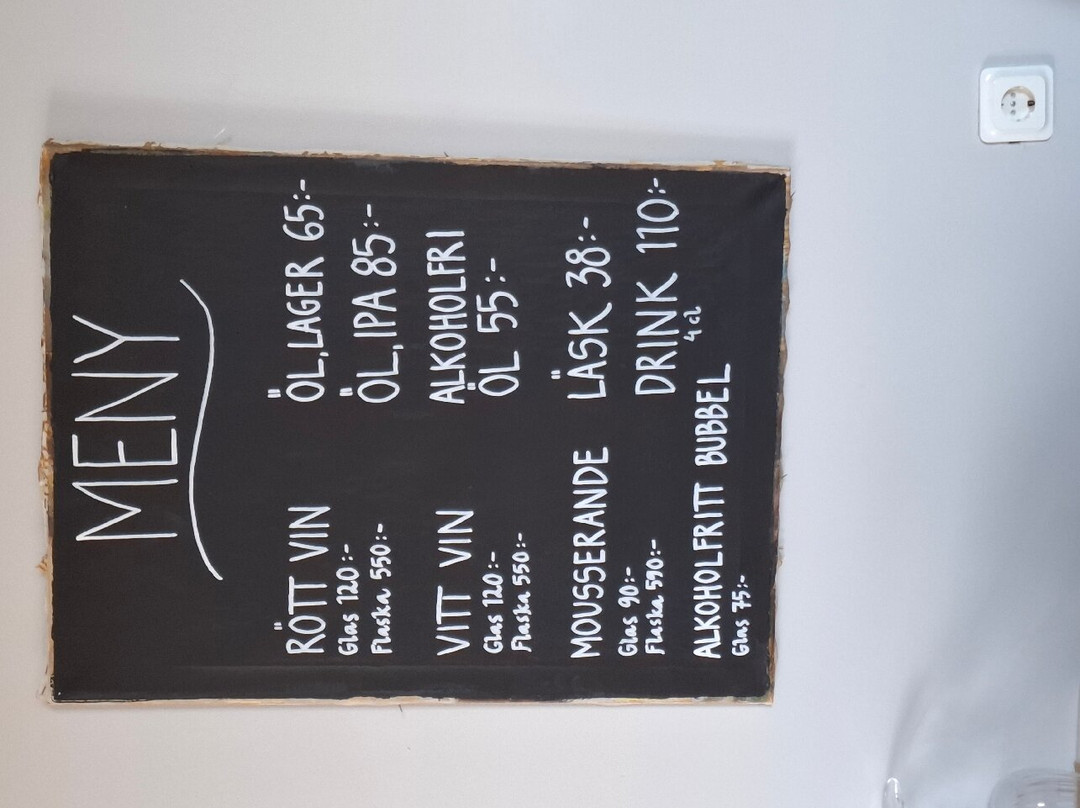 MENY
RÖTT VIN
Glas 120:-
Flaska 550:-
VITT VIN
Glas 120:-
Flaska 550:-
MOUSSERANDE
Glas 90:-
Flaska 590:-
ALKOHOLFRITT BUBBEL
Glas 75:-
ÖL, LAGER 65:-
ÖL, IPA 85:-
ALKOHOLFRI
ÖL 55:-
LÄSK 38:-
DRINK 110:-
4 cl